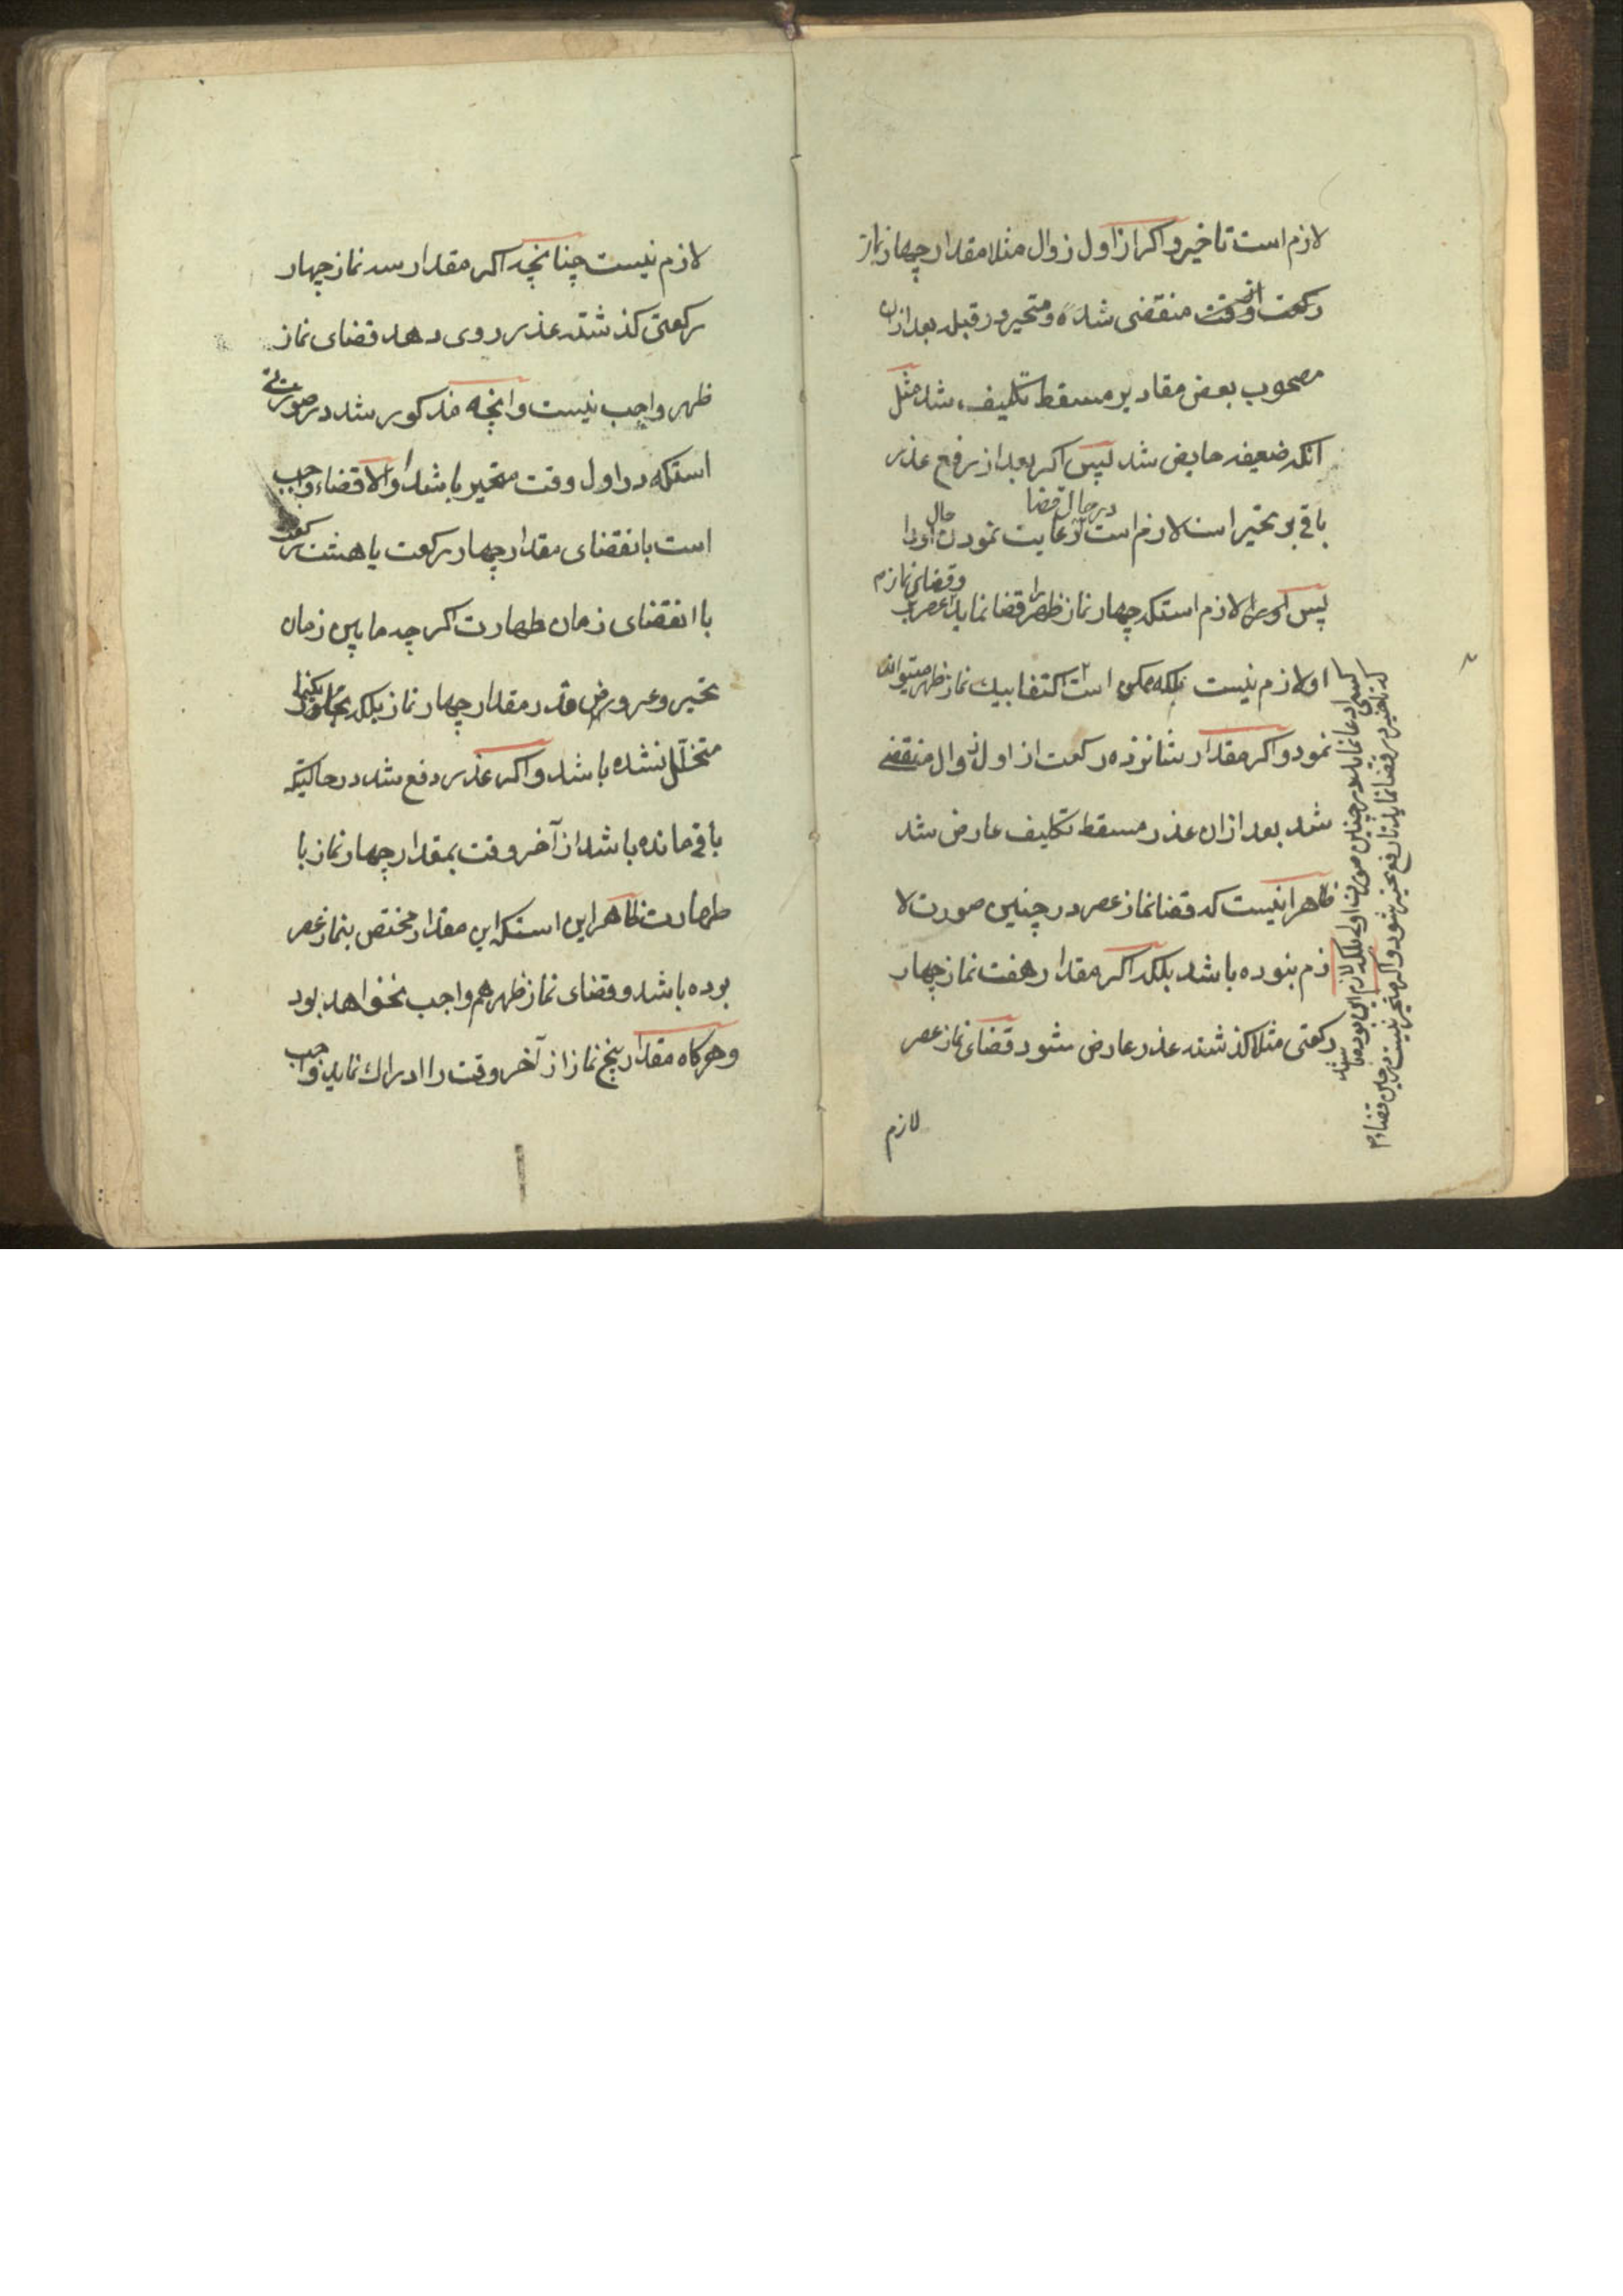 لازم است تاخیر و اکر از اول زوال مثلا مقدار چهار نماز
رکعت از وقت منقضی شده و متحیر در قبله بعد ازان
مصحوب بعض مقادیر مسقط تکلیف شد مثل
انکه ضعیفه حایض شد پس اکر بعد از رفع عذر
باقی بر تحیر است لازم است رعایت نمودن حال اورا
در حال قضا
پس اورا لازم استکه چهار نماز ظهر را قضا نماید
وقضای نماز عصر بر
او لازم نیست بلکه ممکن است اکتفا بیک نماز ظهر میتواند
نمود و اکر مقدار شانزده رکعت از اول زوال منقضی
شد بعد ازان عذر مسقط تکلیف عارض شد
ظاهر انیست که قضا نماز عصر در چنین صورت لا
زم بنوده باشد بلکه اکر مقدار هفت نماز چهار
رکعتی مثلا کذشته عذر عارض شود قضای نماز عصر
لازم
کسی ادعا نماید در چنین صورت اولی بلکه لازم این بوده باشد
که تاخیر در قضا نماید تا رفع تحیر شود و اکر متحیر نیست در حین قضاء
لازم نیست چنانچه اکر مقدار سه نماز چهار
رکعتی کذشته عذر روی دهد قضای نماز
ظهر واجب نیست وانچه مذکور شد در صورتی
استکه در اول وقت متحیر باشد والا قضاء واجب
است بانقضای مقدار چهار رکعت یا هشت رکعت
با انقضای زمان طهارت اکرچه مابین زمان
تحیر وعروض عذر مقدار چهار نماز بلکه
متخلل نشده باشد و اکر عذر رفع شد در حالتیکه
باقی مانده باشد از آخر وقت بمقدار چهار نماز با
طهارت ظاهر این استکه این مقدار مختص بنماز عصر
بوده باشد و قضای نماز ظهر هم واجب نخواهد بود
وهرکاه مقدار پنج نماز از آخر وقت را ادراک نماید واجب